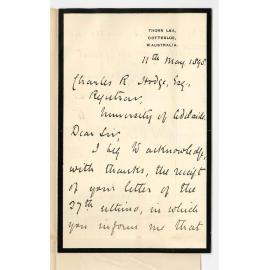 THORN LEA,
COTTESLOE,
W. AUSTRALIA.
11th May, 1898
Charles R. Hodge, Esq.,
Registrar,
University of Adelaide.
Dear Sir,
I beg to acknowledge,
with thanks, the receipt
of your letter of the
27th ultimo, in which
you informs me that